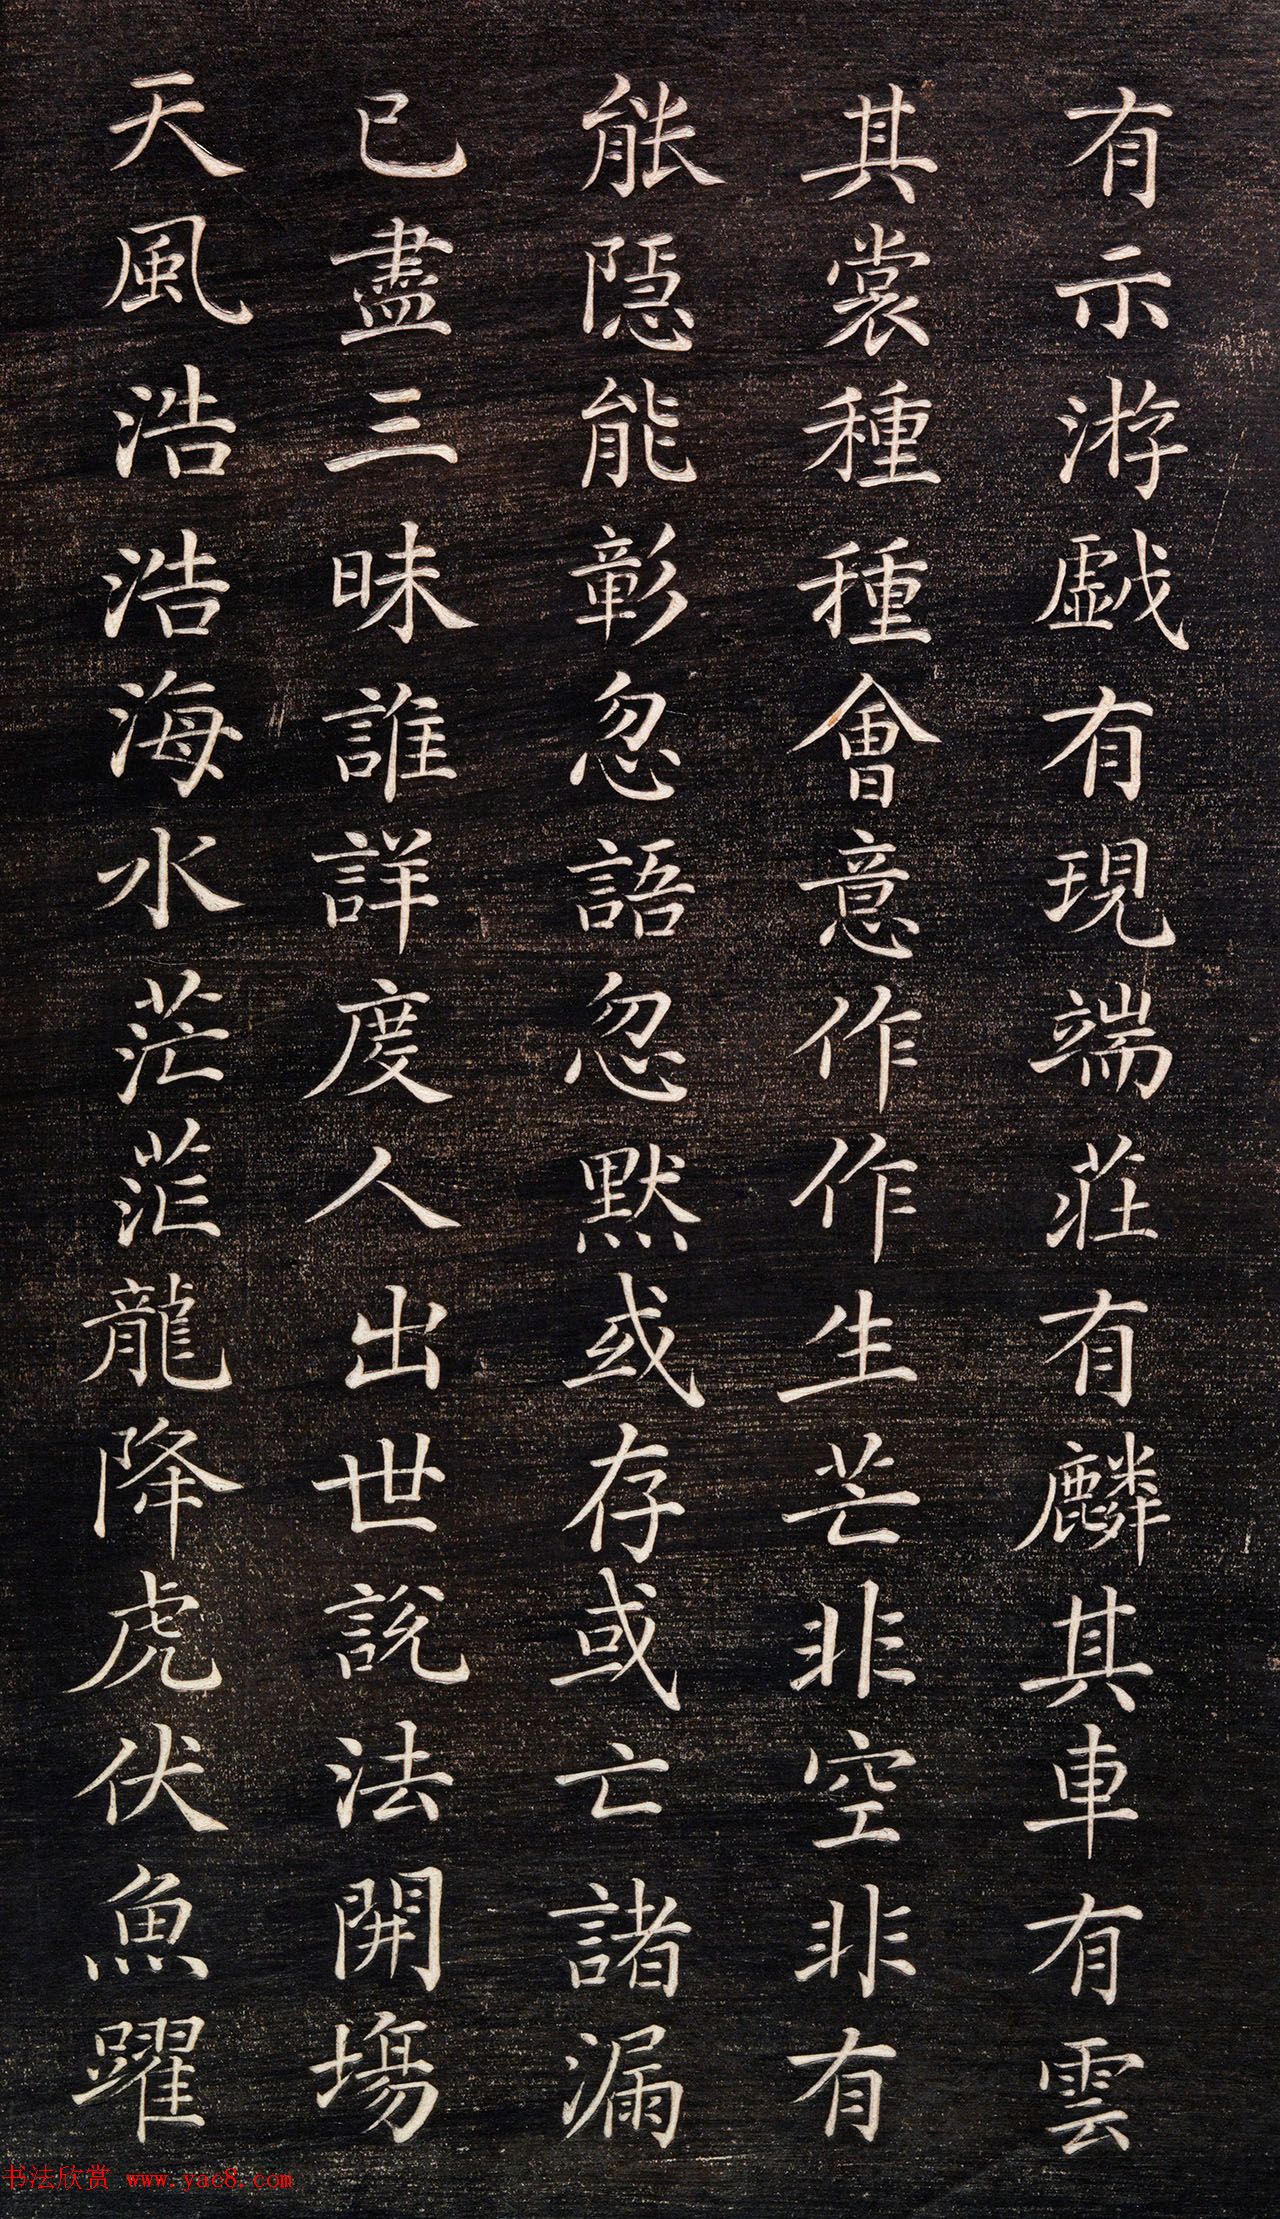 有示游戲有現端莊有麟其車有雲
其裳種種會意作作生芒非空非有
能隱能彰忽語忽默或存或亡諸漏
已盡三昧誰詳度人出世説法開場
天風浩浩海水茫茫龍降虎伏魚躍
书法欣赏 www.yac8.com